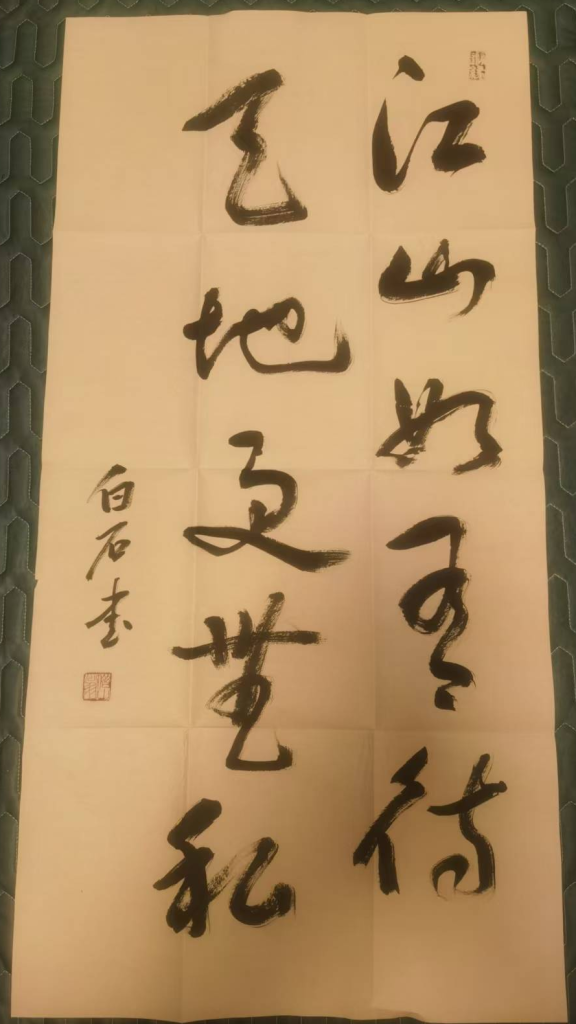 江山如有待
天地更無私
白石书